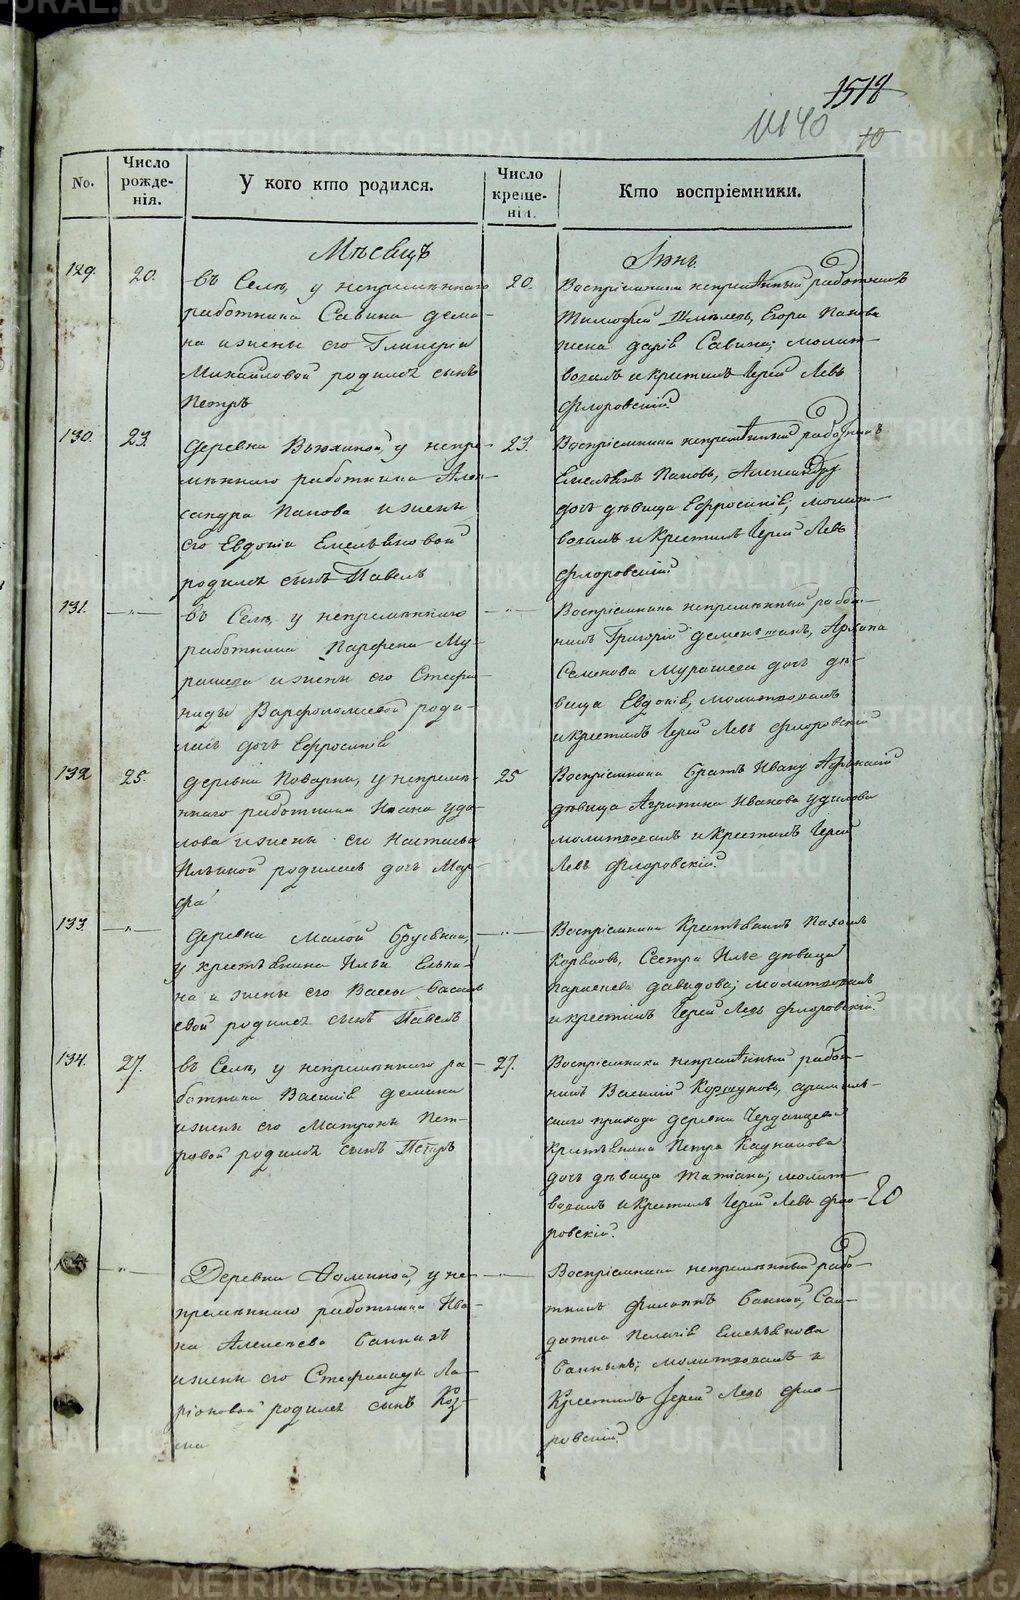 1518
40
10
No.
Число рожде-нія.
У кого кто родился.
Число креще-нія.
Кто воспріемники.
Мѣсяцъ
Іюнь.
129.
20.
въ Селѣ, у непремѣннаго
работника Савина деми-
на и жены его Гликеріи
Михайловой родился сынъ
Петръ
20.
Воспріемники непремѣнный работникъ
Тимофей Шмелевъ, Егора Панова
жена дарія Савина; молит-
вовалъ и крестилъ Іерей Левъ
Флоровскій.
130.
23.
деревни Вьюхиной, у непре-
мѣннаго работника Алек-
сандра Панова и жены
его Евдокіи Емельяновой
родился сынъ Павелъ
23.
Воспріемники непремѣнный работникъ
Емельянъ Пановъ, Александру
дочь дѣвица Ефросинія; молит-
вовалъ и Крестилъ Іерей Левъ
Флоровскій
131.
—"—
въ Селѣ, у непремѣннаго
работника Парфена Му-
рашева и жены его Стефа-
ниды Варфоломеевой роди-
лась дочь Ефросинія
—"—
Воспріемники непремѣнный работ-
никъ Григорій дементьевъ, Архипа
Семенова Мурашева дочь дѣ-
вица Евдокія, молитвовалъ
и крестилъ Іерей Левъ Флоровскій
132
25.
деревни Поварни, у непремѣн-
ннаго работника Ивана уди-
лова и жены его Настасьи
Ильиной родилась дочь Мар-
фа
25
Воспріемники братъ Ивану Афанасій
дѣвица Агрипина Иванова удилова
молитвовалъ и Крестилъ Іерей
Левъ Флоровскій
133.
—"—
деревни Малой брусянки,
у крестьянина Ильи Ельки-
на и жены его Вассы Василь
евой родился сынъ Павелъ
—"—
Воспріемники Крестьянинъ Пахомъ
Коряковъ, Сестра Илье дѣвица
давидова; молитвовалъ
и крестилъ Іерей Левъ Флоровскій.
134.
27.
въ Селѣ, у непремѣннаго ра-
ботника Василія демина
и жены его Матроны Пет-
ровой родился сынъ Петръ
27.
Воспріемники непремѣнный работ-
никъ Василій Коршуновъ, арамиль-
скаго прихода деревни Черданцевой
Крестьянина Петра
дочь дѣвица Татіана; молит-
вовалъ и Крестилъ Іерей Левъ Фло-
ровскій.
20
—"—
Деревни Фоминой, у не-
премѣннаго работника Ива-
на Алексѣева банныхъ
и жены его Стефаниды Ла-
ріоновой родился сынъ Коз-
ма
—"—
Воспріемники непремѣнный рабо-
тникъ Филиппъ банной, Сол-
датка Пелагія Емельянова
банныхъ; молитвовалъ и
Крестилъ Іерей Левъ Фло-
ровскій.
METRIKI.GASO-URAL.RU